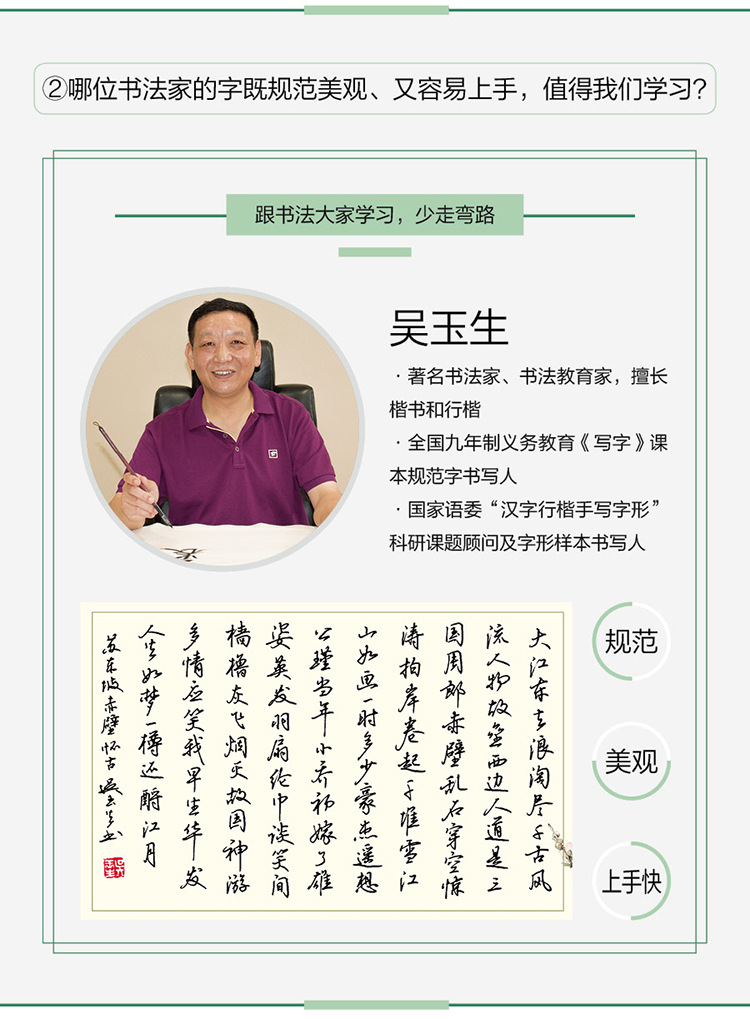 ②哪位书法家的字既规范美观、又容易上手，值得我们学习？
跟书法大家学习，少走弯路
吴玉生
·著名书法家、书法教育家，擅长
楷书和行楷
·全国九年制义务教育《写字》课
本规范字书写人
·国家语委“汉字行楷手写字形”
科研课题顾问及字形样本书写人
大江东去浪淘尽千古风
流人物故垒西边人道是三
国周郎赤壁乱石穿空惊
涛拍岸卷起千堆雪江
山如画一时多少豪杰遥想
公瑾当年小乔初嫁了雄
姿英发羽扇纶巾谈笑间
樯橹灰飞烟灭故国神游
多情应笑我早生华发
人生如梦一樽还酹江月
苏东坡赤壁怀古吴玉生书
规范
美观
上手快